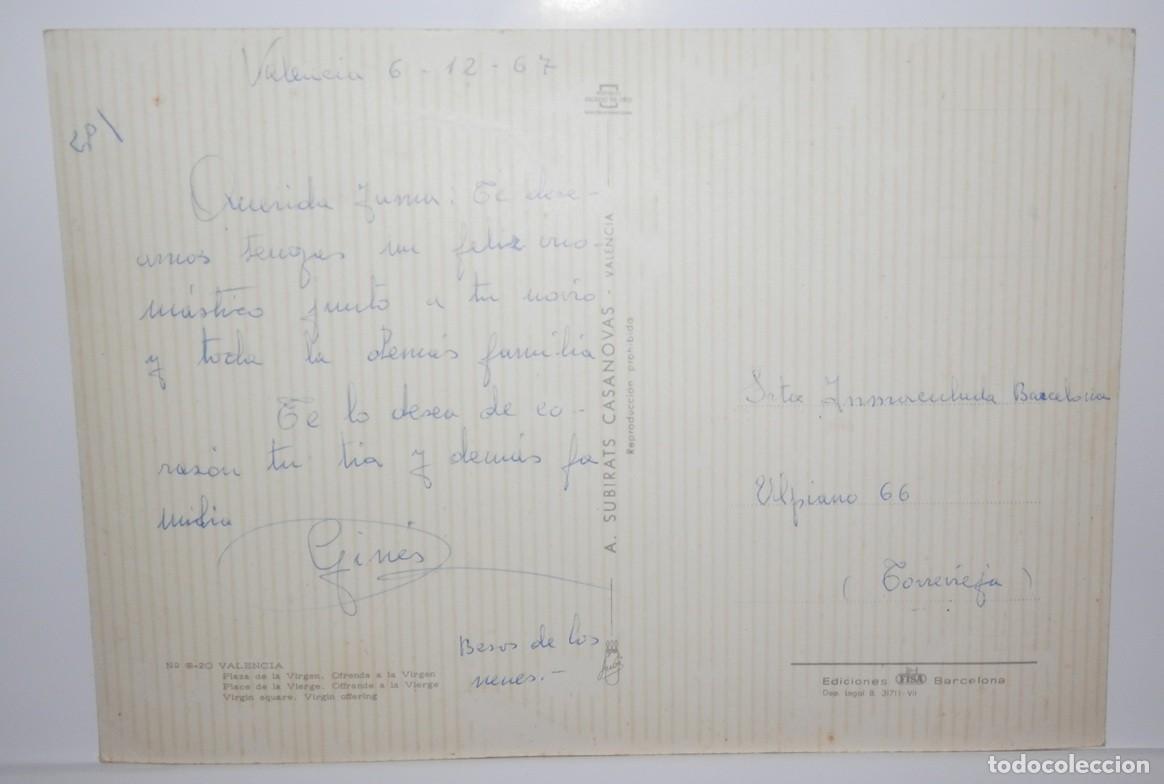 Valencia 6-12-67
28
Querida Inma: Te dese-
amos tengas un feliz ono-
mástico junto a tu novio
y toda la demás familia
Te lo desea de co-
razón tu tia y demás fa
milia
Ginés
Besos de los
nenes.-
Nº 8-20 VALENCIA
Plaza de la Virgen. Ofrenda a la Virgen
Place de la Vierge. Offrande a la Vierge
Virgin square. Virgin offering
A. SUBIRATS CASANOVAS - VALENCIA
Reproducción prohibida
Srta Inmaculada Barcelona
Ulpiano 66
(Torrevieja)
Ediciones FISA Barcelona
Dep. Legal B. 31711-VII
todocoleccion